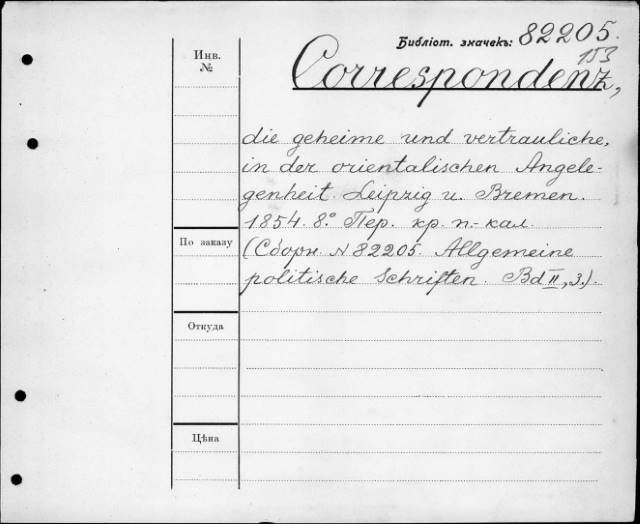 Библіот. значекъ: 82205.
153
Инв.
№
Correspondenz,
die geheime und vertrauliche,
in der orientalischen Angele-
genheit. Leipzig u. Bremen.
1854. 8.° Пер. кр. п.-кал.
По заказу
(Сборн. N 82205. Allgemeine
politische Schriften. Bd II, 3.).
Откуда
Цѣна